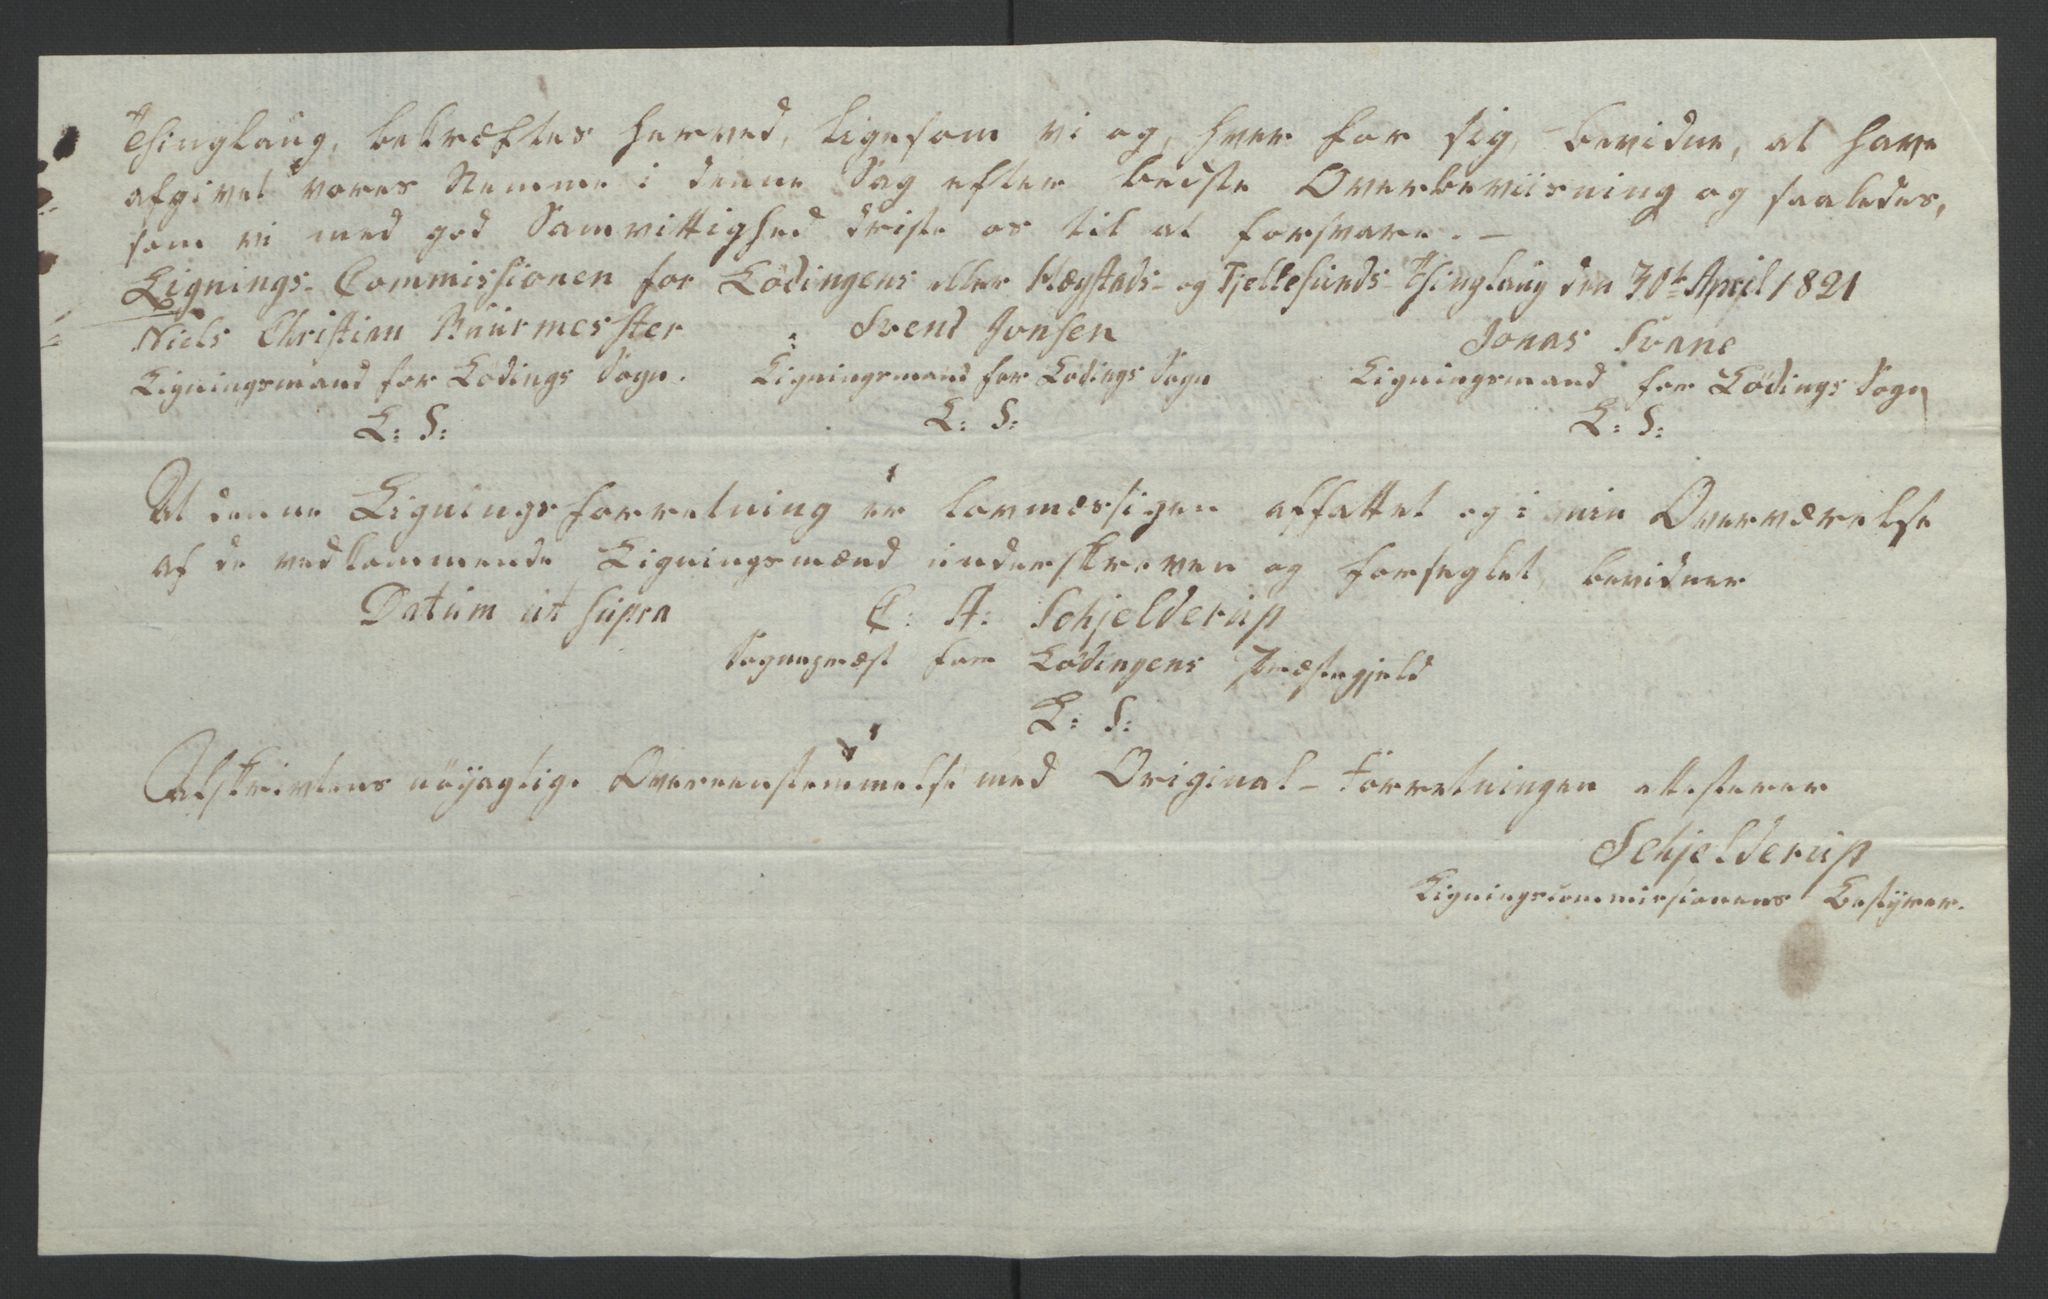 Thinglaug, bekræftes herved, ligesom vi og, hver for sig, bevidne, at have
afgivet vores Stemme i denne Sag efter bedste Overbeviisning og saaledes,
som vi med god Samvittighed driste os til at forsvare. —
Lignings-Commissionen for Lødingens eller Hægstads- og Tjellesunds-Thinglaug den 30te April 1821
Niels Christian Buurmesster : Svend Jonsen Jonas Svane
Ligningsmand for Lødings Sogn. Ligningsmand for Lødings Sogn Ligningsmand for Lødings Sogn
L: S: L: S: L: S:
At denne Ligningsforretning er lovmæssigen affattet og i min Overværelse
af de vedkommende Ligningsmænd underskreven og forseglet, bevidner
Datum ut supra C: A: Schjelderup
Sognepræst for Lødingens Præstegjeld
L: S:
Afskrivtens nöÿagtige Overeenstemmelse med Original-Forretningen attesterer
Schjelderup
Ligningscommissionens Bestÿrer.